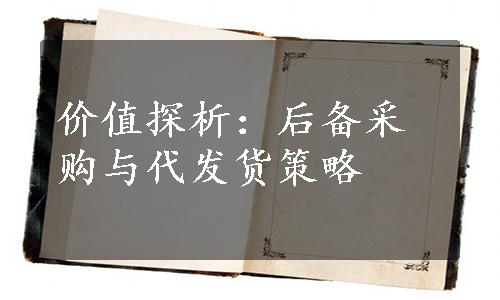 价值探析：后备采
购与代发货策略